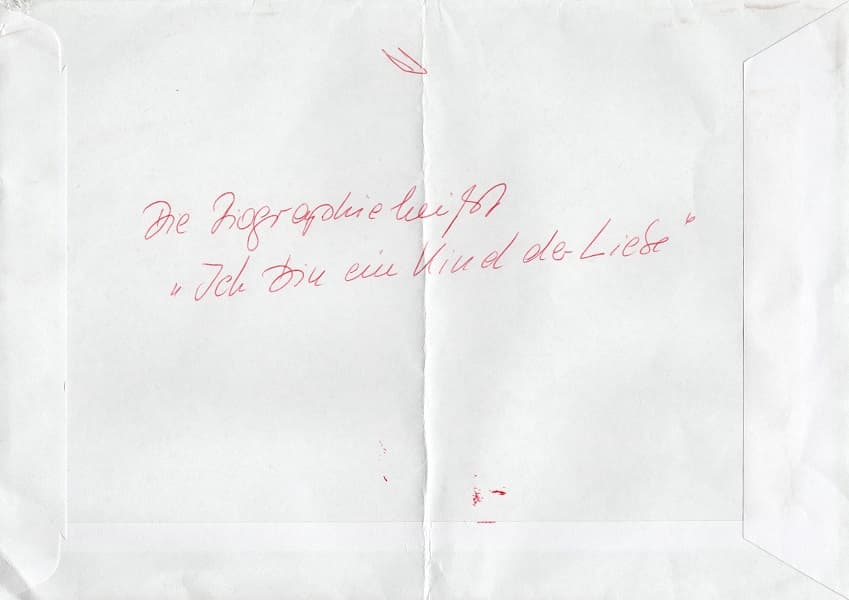 Die Biographie heißt
„Ich bin ein Kind der Liebe"